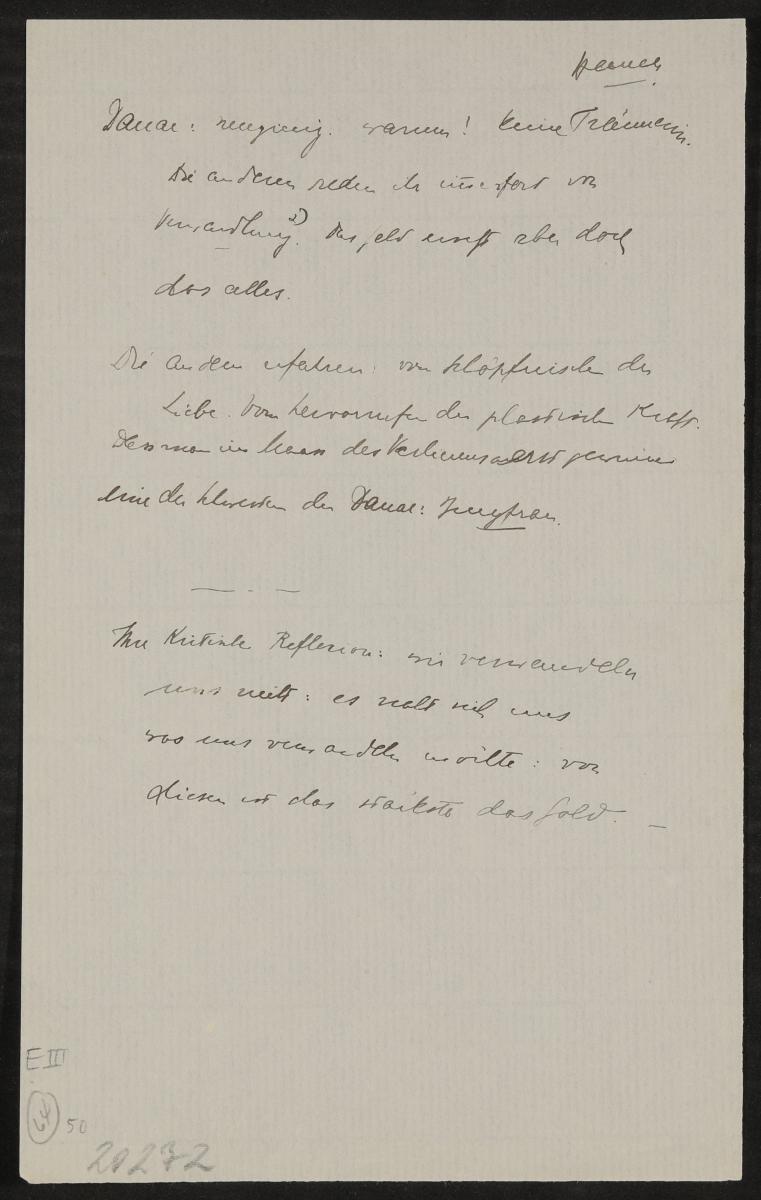 Danae
Danae: neugierig. warum! keine Träumerin.
Die anderen reden ihr immerfort von
Verwandlung 2). Das Geld aber doch
das alles.
Die andern erfahren: vom Schöpferischen der
Liebe. Vom Hervorrufen der plastischen Kraft.
Dass man im Maass des Verlierens erst gewinne
eine der Schwestern der Danae: Jungfrau.
— . —
Ihre Kritische Reflexion: wir verwandeln
uns nicht: es naht sich uns
was uns verwandeln wollte: von
diesen ist das stärkste das Gold. —
E III
64 50
20272